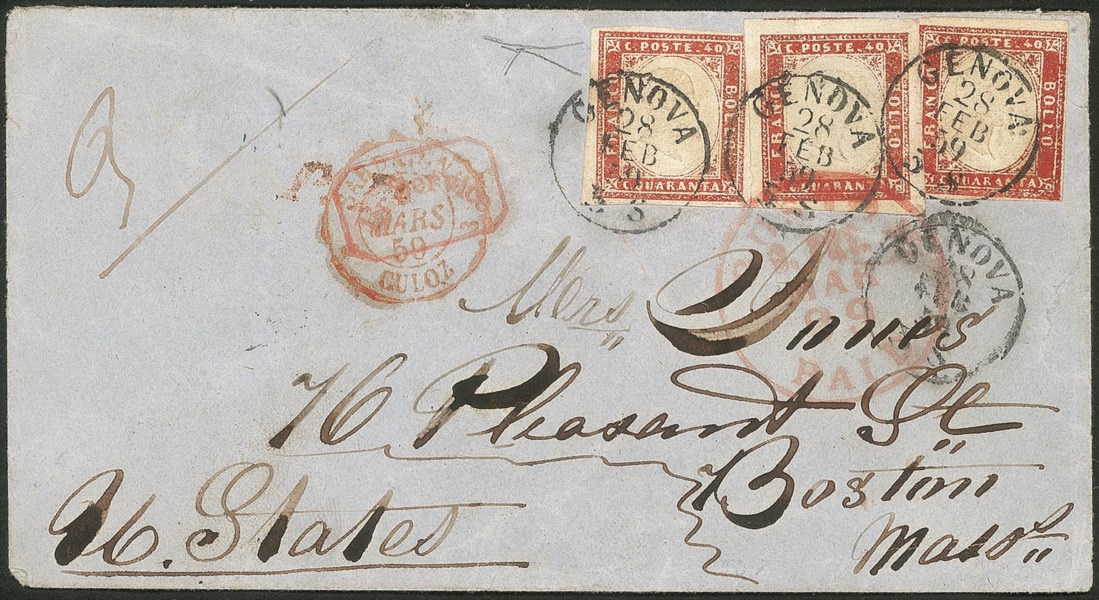 C. POSTE. 40
FRANCO
BOLLO
C. QUARANTA
C. POSTE. 40
FRANCO
BOLLO
C. QUARANTA
C. POSTE. 40
FRANCO
BOLLO
C. QUARANTA
GENOVA
28
FEB
59
GENOVA
28
FEB
59
GENOVA
28
FEB
59
GENOVA
MARS
59
CULOZ
MAR
PAID
Mrs„ Innes
76 Pleasant St
Boston
Mass„
U. States